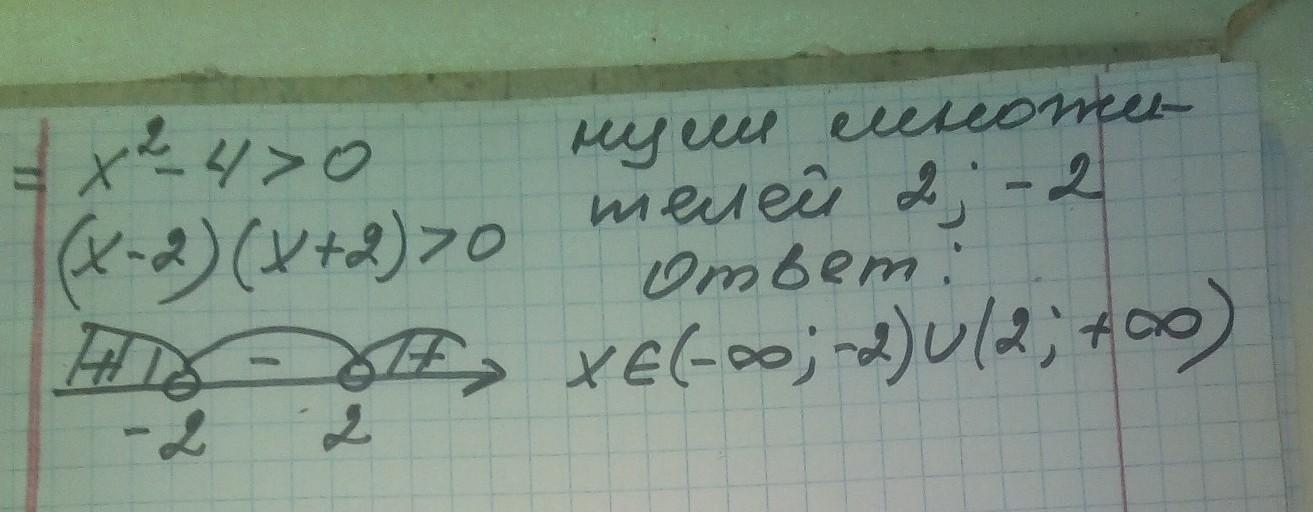 = x² - 4 > 0
(x-2)(x+2)>0
+ - +
-2 2
нули множи-
телей 2; -2
ответ:
x∈(-∞; -2)∪(2; +∞)